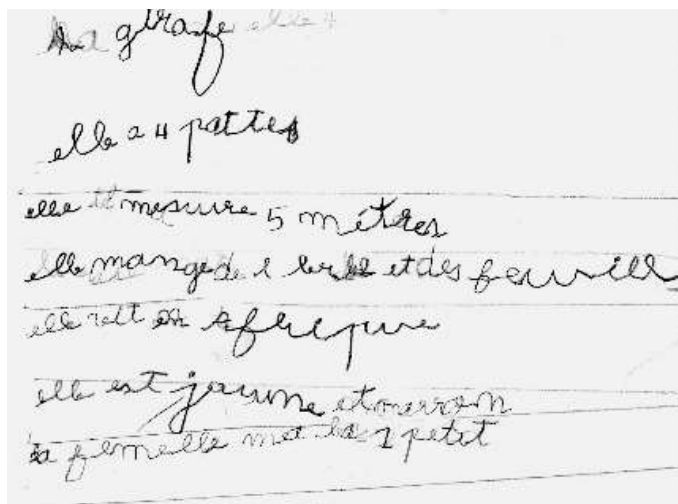 La girafe elle a
elle a 4 pattes
elle mesure 5 mètres
elle mange de l herbe et des feuill
elle en afrique
elle est jaune et marron
la femelle met 1 petit